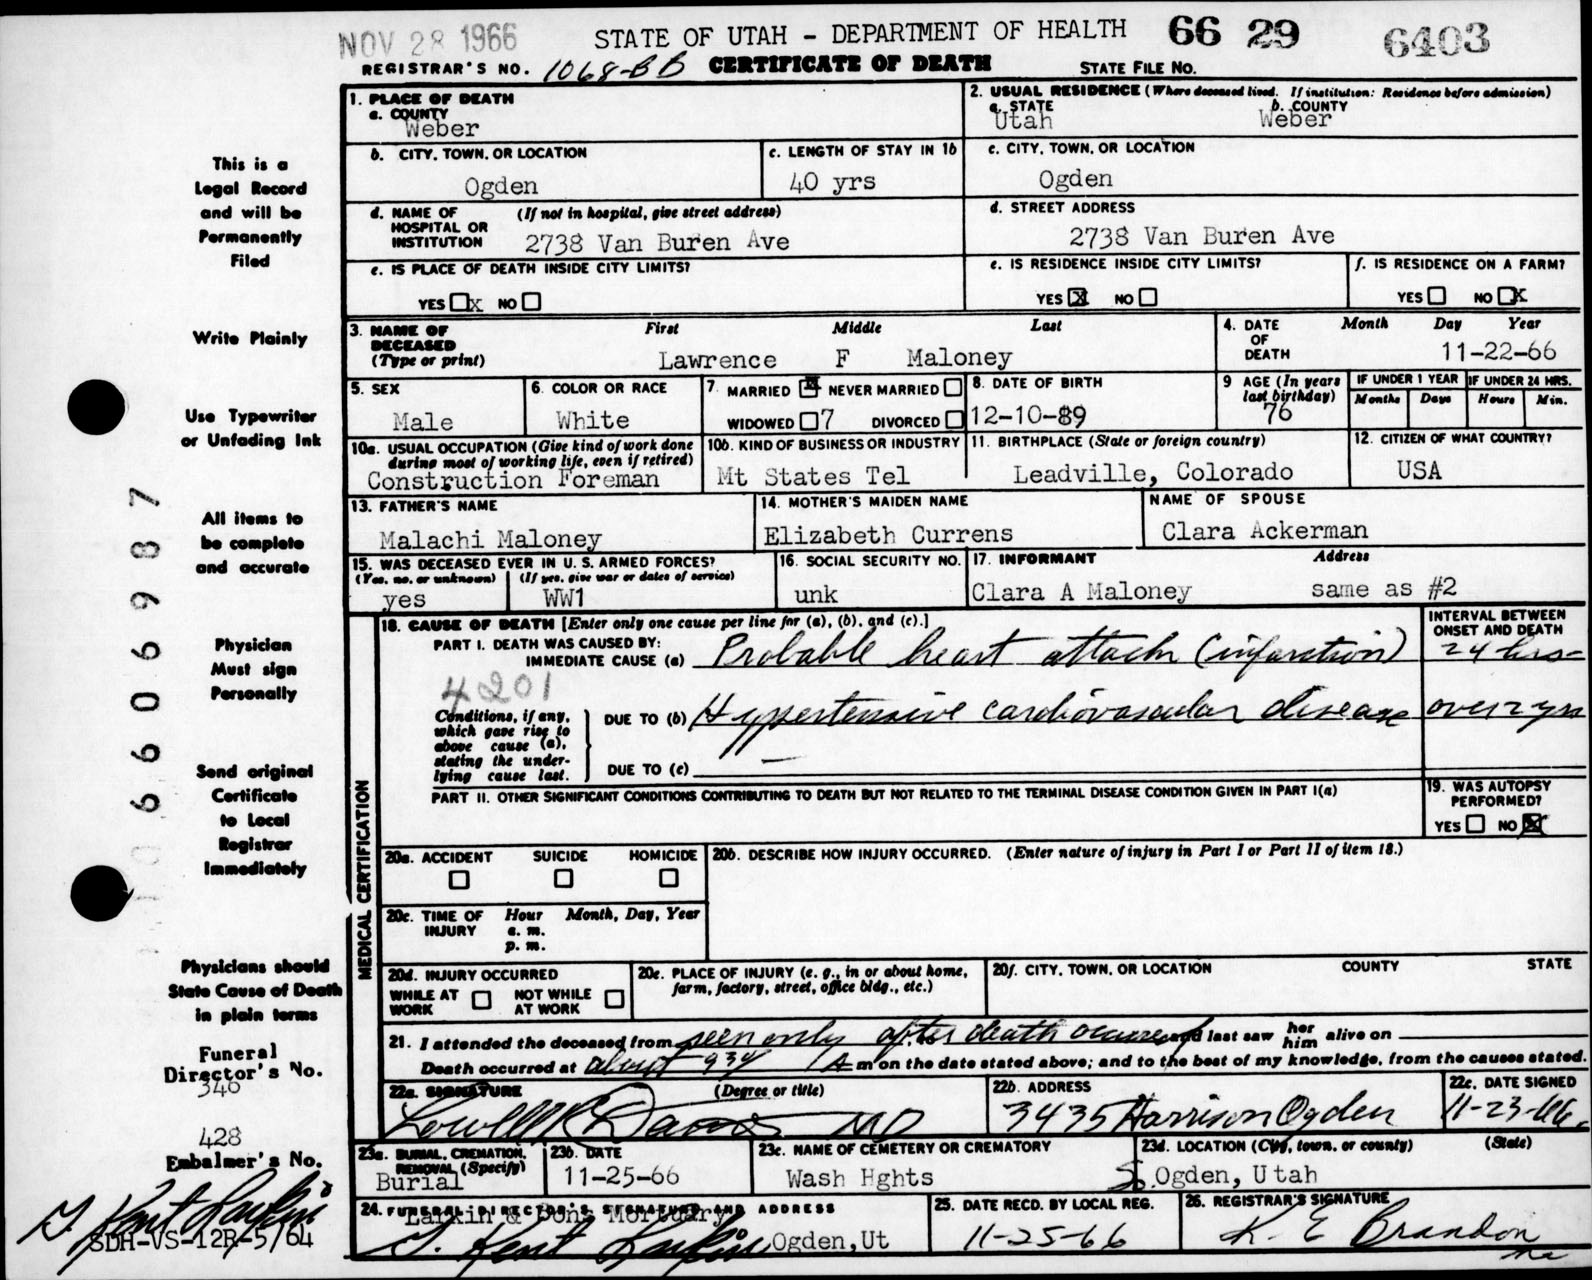 NOV 28 1966
STATE OF UTAH - DEPARTMENT OF HEALTH 66 29 6403
REGISTRAR'S NO. 1068-BB CERTIFICATE OF DEATH STATE FILE NO.
This is a
Legal Record
and will be
Permanently
Filed
Write Plainly
Use Typewriter
or Unfading Ink
All items to
be complete
and accurate
Physician
Must sign
Personally
Send original
Certificate
to Local
Registrar
Immediately
Physicians should
State Cause of Death
in plain terms
Funeral
Director's No.
346
428
Embalmer's No.
T. Kent Larkin
SDH-VS-12R-5/64
66069 87
1. PLACE OF DEATH
a. COUNTY
Weber
2. USUAL RESIDENCE (Where deceased lived. If institution: Residence before admission)
a. STATE b. COUNTY
Utah Weber
b. CITY, TOWN, OR LOCATION
Ogden
c. LENGTH OF STAY IN 1b
40 yrs
c. CITY, TOWN, OR LOCATION
Ogden
d. NAME OF HOSPITAL OR INSTITUTION (If not in hospital, give street address)
2738 Van Buren Ave
d. STREET ADDRESS
2738 Van Buren Ave
e. IS PLACE OF DEATH INSIDE CITY LIMITS?
YES x NO
e. IS RESIDENCE INSIDE CITY LIMITS?
YES X NO
f. IS RESIDENCE ON A FARM?
YES NO X
3. NAME OF DECEASED (Type or print) First Middle Last
Lawrence F Maloney
4. DATE OF DEATH Month Day Year
11-22-66
5. SEX
Male
6. COLOR OR RACE
White
7. MARRIED NEVER MARRIED
WIDOWED 7 DIVORCED
8. DATE OF BIRTH
12-10-89
9 AGE (In years last birthday)
76
IF UNDER 1 YEAR IF UNDER 24 HRS.
Months Days Hours Min.
10a. USUAL OCCUPATION (Give kind of work done during most of working life, even if retired)
Construction Foreman
10b. KIND OF BUSINESS OR INDUSTRY
Mt States Tel
11. BIRTHPLACE (State or foreign country)
Leadville, Colorado
12. CITIZEN OF WHAT COUNTRY?
USA
13. FATHER'S NAME
Malachi Maloney
14. MOTHER'S MAIDEN NAME
Elizabeth Currens
NAME OF SPOUSE
Clara Ackerman
15. WAS DECEASED EVER IN U. S. ARMED FORCES?
(Yes, no, or unknown) (If yes, give war or dates of service)
yes WW1
16. SOCIAL SECURITY NO.
unk
17. INFORMANT Address
Clara A Maloney same as #2
MEDICAL CERTIFICATION
18. CAUSE OF DEATH [Enter only one cause per line for (a), (b), and (c).]
INTERVAL BETWEEN ONSET AND DEATH
PART I. DEATH WAS CAUSED BY:
IMMEDIATE CAUSE (a) Probable heart attack (infarction) 24 hrs-
4201
Conditions, if any, which gave rise to above cause (a), stating the underlying cause last.
DUE TO (b) Hypertensive cardiovascular disease over 2 yrs
DUE TO (c) —
PART II. OTHER SIGNIFICANT CONDITIONS CONTRIBUTING TO DEATH BUT NOT RELATED TO THE TERMINAL DISEASE CONDITION GIVEN IN PART I(a)
19. WAS AUTOPSY PERFORMED?
YES NO X
20a. ACCIDENT SUICIDE HOMICIDE
20b. DESCRIBE HOW INJURY OCCURRED. (Enter nature of injury in Part I or Part II of item 18.)
20c. TIME OF INJURY Hour Month, Day, Year
a. m.
p. m.
20d. INJURY OCCURRED
WHILE AT WORK NOT WHILE AT WORK
20e. PLACE OF INJURY (e. g., in or about home, farm, factory, street, office bldg., etc.)
20f. CITY, TOWN, OR LOCATION COUNTY STATE
21. I attended the deceased from seen only after death occurred and last saw her him alive on
Death occurred at about 930 A m on the date stated above; and to the best of my knowledge, from the causes stated.
22a. SIGNATURE (Degree or title)
MD
22b. ADDRESS
3435 Harrison Ogden
22c. DATE SIGNED
11-23-66
23a. BURIAL, CREMATION, REMOVAL (Specify)
Burial
23b. DATE
11-25-66
23c. NAME OF CEMETERY OR CREMATORY
Wash Hghts
23d. LOCATION (City, town, or county) (State)
S. Ogden, Utah
24. FUNERAL DIRECTOR'S SIGNATURE AND ADDRESS
Larkin & Sons Mortuary
T. Kent Larkin Ogden, Ut
25. DATE RECD. BY LOCAL REG.
11-25-66
26. REGISTRAR'S SIGNATURE
K. E Brandon